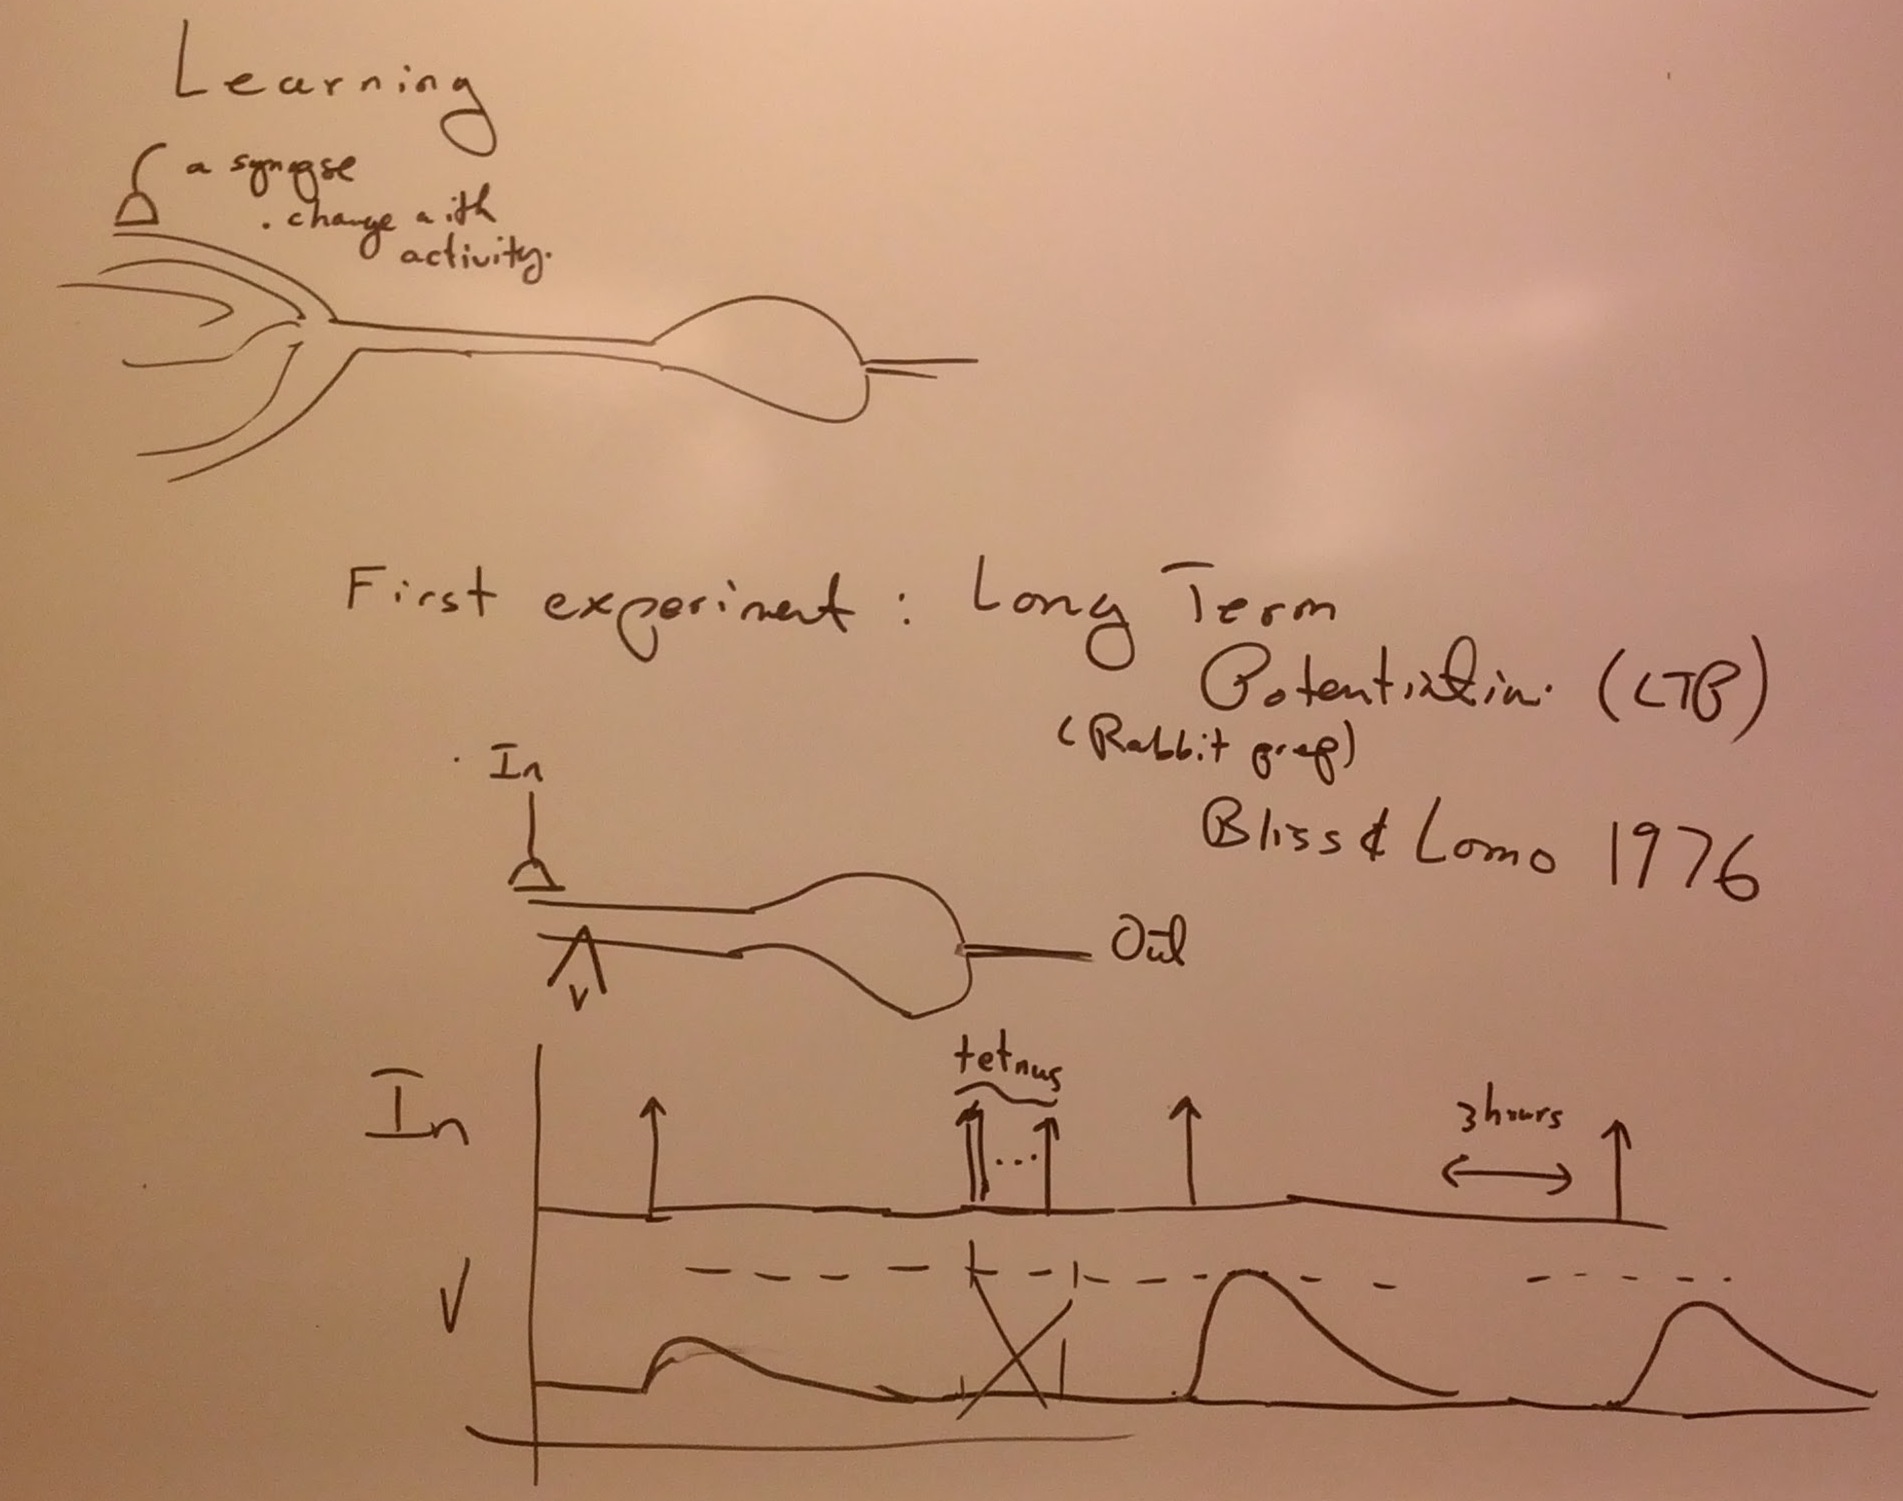 Learning
a synapse
. change with
activity.
First experiment : Long Term
Potentiation (LTP)
(Rabbit prep)
Bliss & Lomo 1976
In
Out
V
tetnus
In
3 hours
...
V